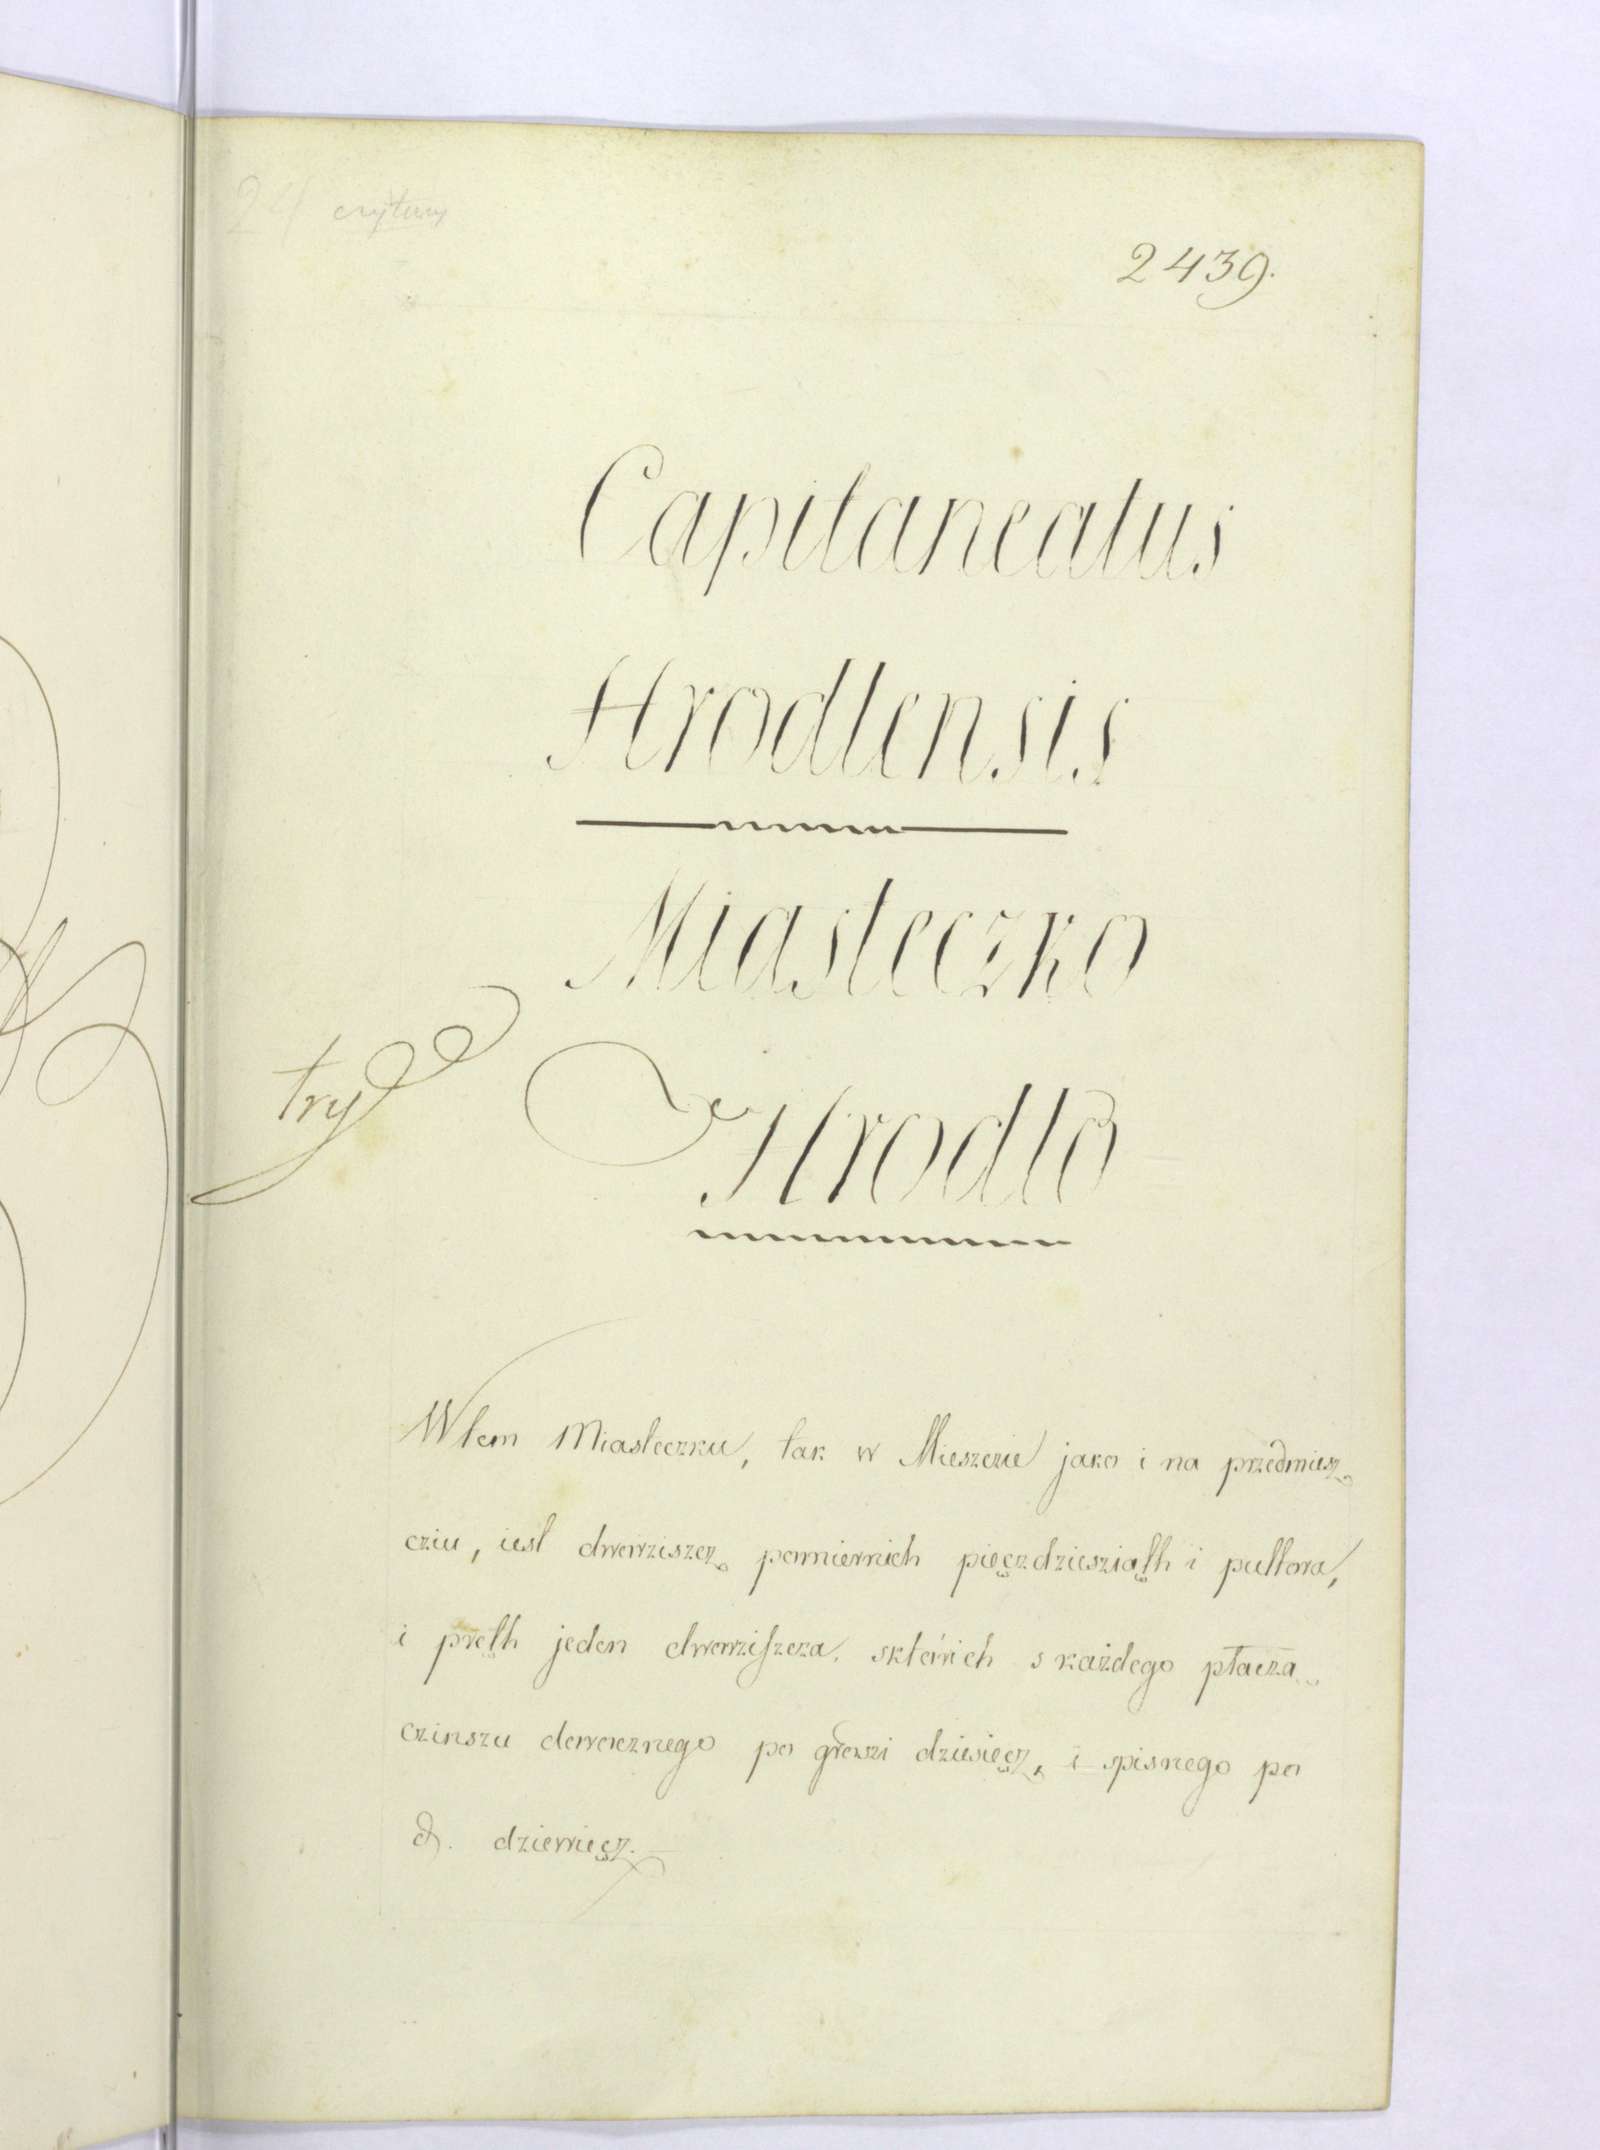 2439.
Capitaneatus
Hrodlensis
Miasteczko
try
Hrodło
Wtem Miasteczku, tak w Mieszczie jako i na przedmiesz
cziu, iest dworziszcz pomiernich pięczdziesziąth i pułtora,
i pręth jeden dworziszcza, sktórich s każdego płaczą
czinszu dorocznego po groszi dziesięcz, i spisnego po
d. dziewięcz.